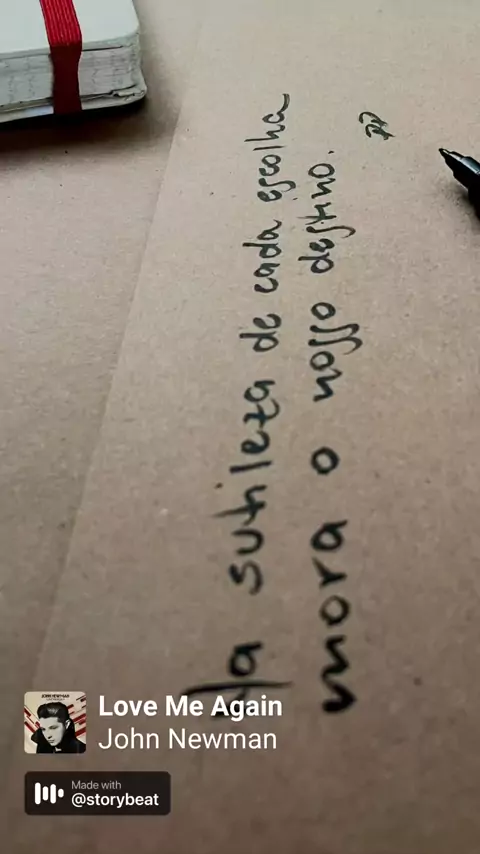 Na sutileza de cada escolha
mora o nosso destino.
Love Me Again
John Newman
Made with
@storybeat